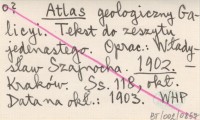 o2
Atlas geologiczny Ga-
licyi. Tekst do zeszytu
jedenastego. Oprac.: Włady-
sław Szajnocha. 1902 –
Kraków. Ss. 118, okł.
Data na okł.: 1903. WHP